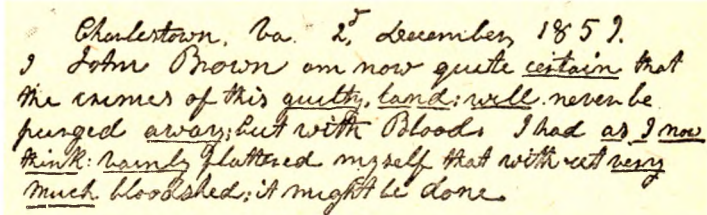 Charlestown, Va. 2d, December, 1859.
I John Brown am now quite certain that
the crimes of this guilty, land: will never be
purged away; but with Blood. I had as I now
think: vainly flattered myself that without very
much bloodshed; it might be done.